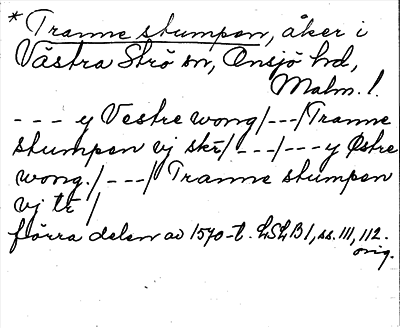 * Tranne stumpen, åker i
Västra Strö sn, Onsjö hd,
Malm. l.
- - - y Vestre wong /---/ Tranne
stumpen vj skr/ ---/ --- y Østre
wong. / ---/ Tranne stumpen
vj tr /
förra delen av 1570-t. LSLB 1, ss. 111, 112.
orig.